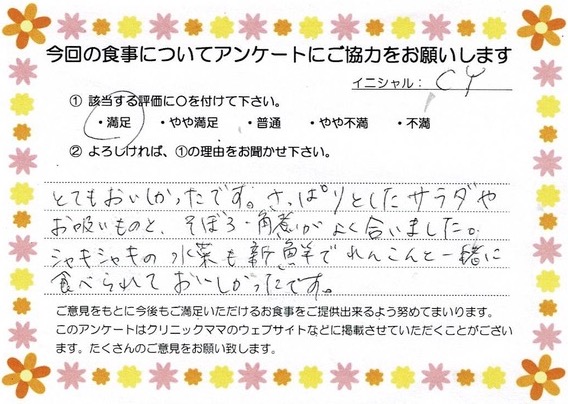 今回の食事についてアンケートにご協力をお願いします
イニシャル： CY
① 該当する評価に〇を付けて下さい。
・満足 ・やや満足 ・普通 ・やや不満 ・不満
② よろしければ、①の理由をお聞かせ下さい。
とてもおいしかったです。さっぱりとしたサラダや
お吸いものと、そぼろ・角煮がよく合いました。
シャキシャキの水菜も新鮮でれんこんと一緒に
食べられておいしかったです。
ご意見をもとに今後もご満足いただけるお食事をご提供出来るよう努めてまいります。
このアンケートはクリニックママのウェブサイトなどに掲載させていただくことがござい
ます。たくさんのご意見をお願い致します。